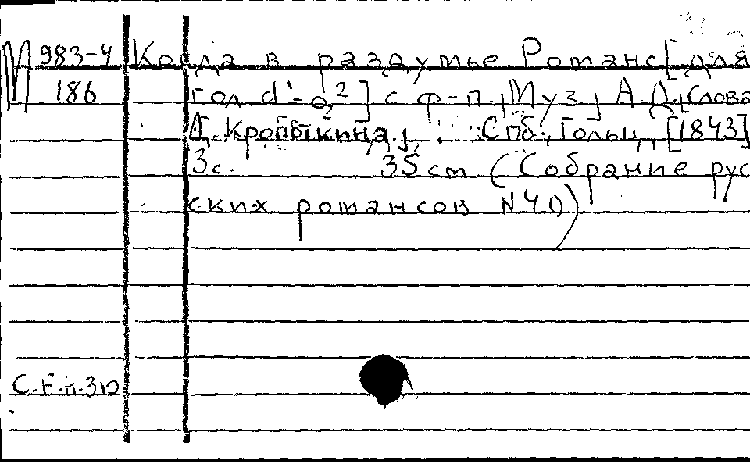 М 983-4 Когда в раздумье Романс [для
186 гол. d¹-g²] с ф-п., Муз. А. Д., Слова
Д. Кропоткина,. Спб., Гольц, [1843]
3с. 35 cm (Собрание рус
ских романсов N40)